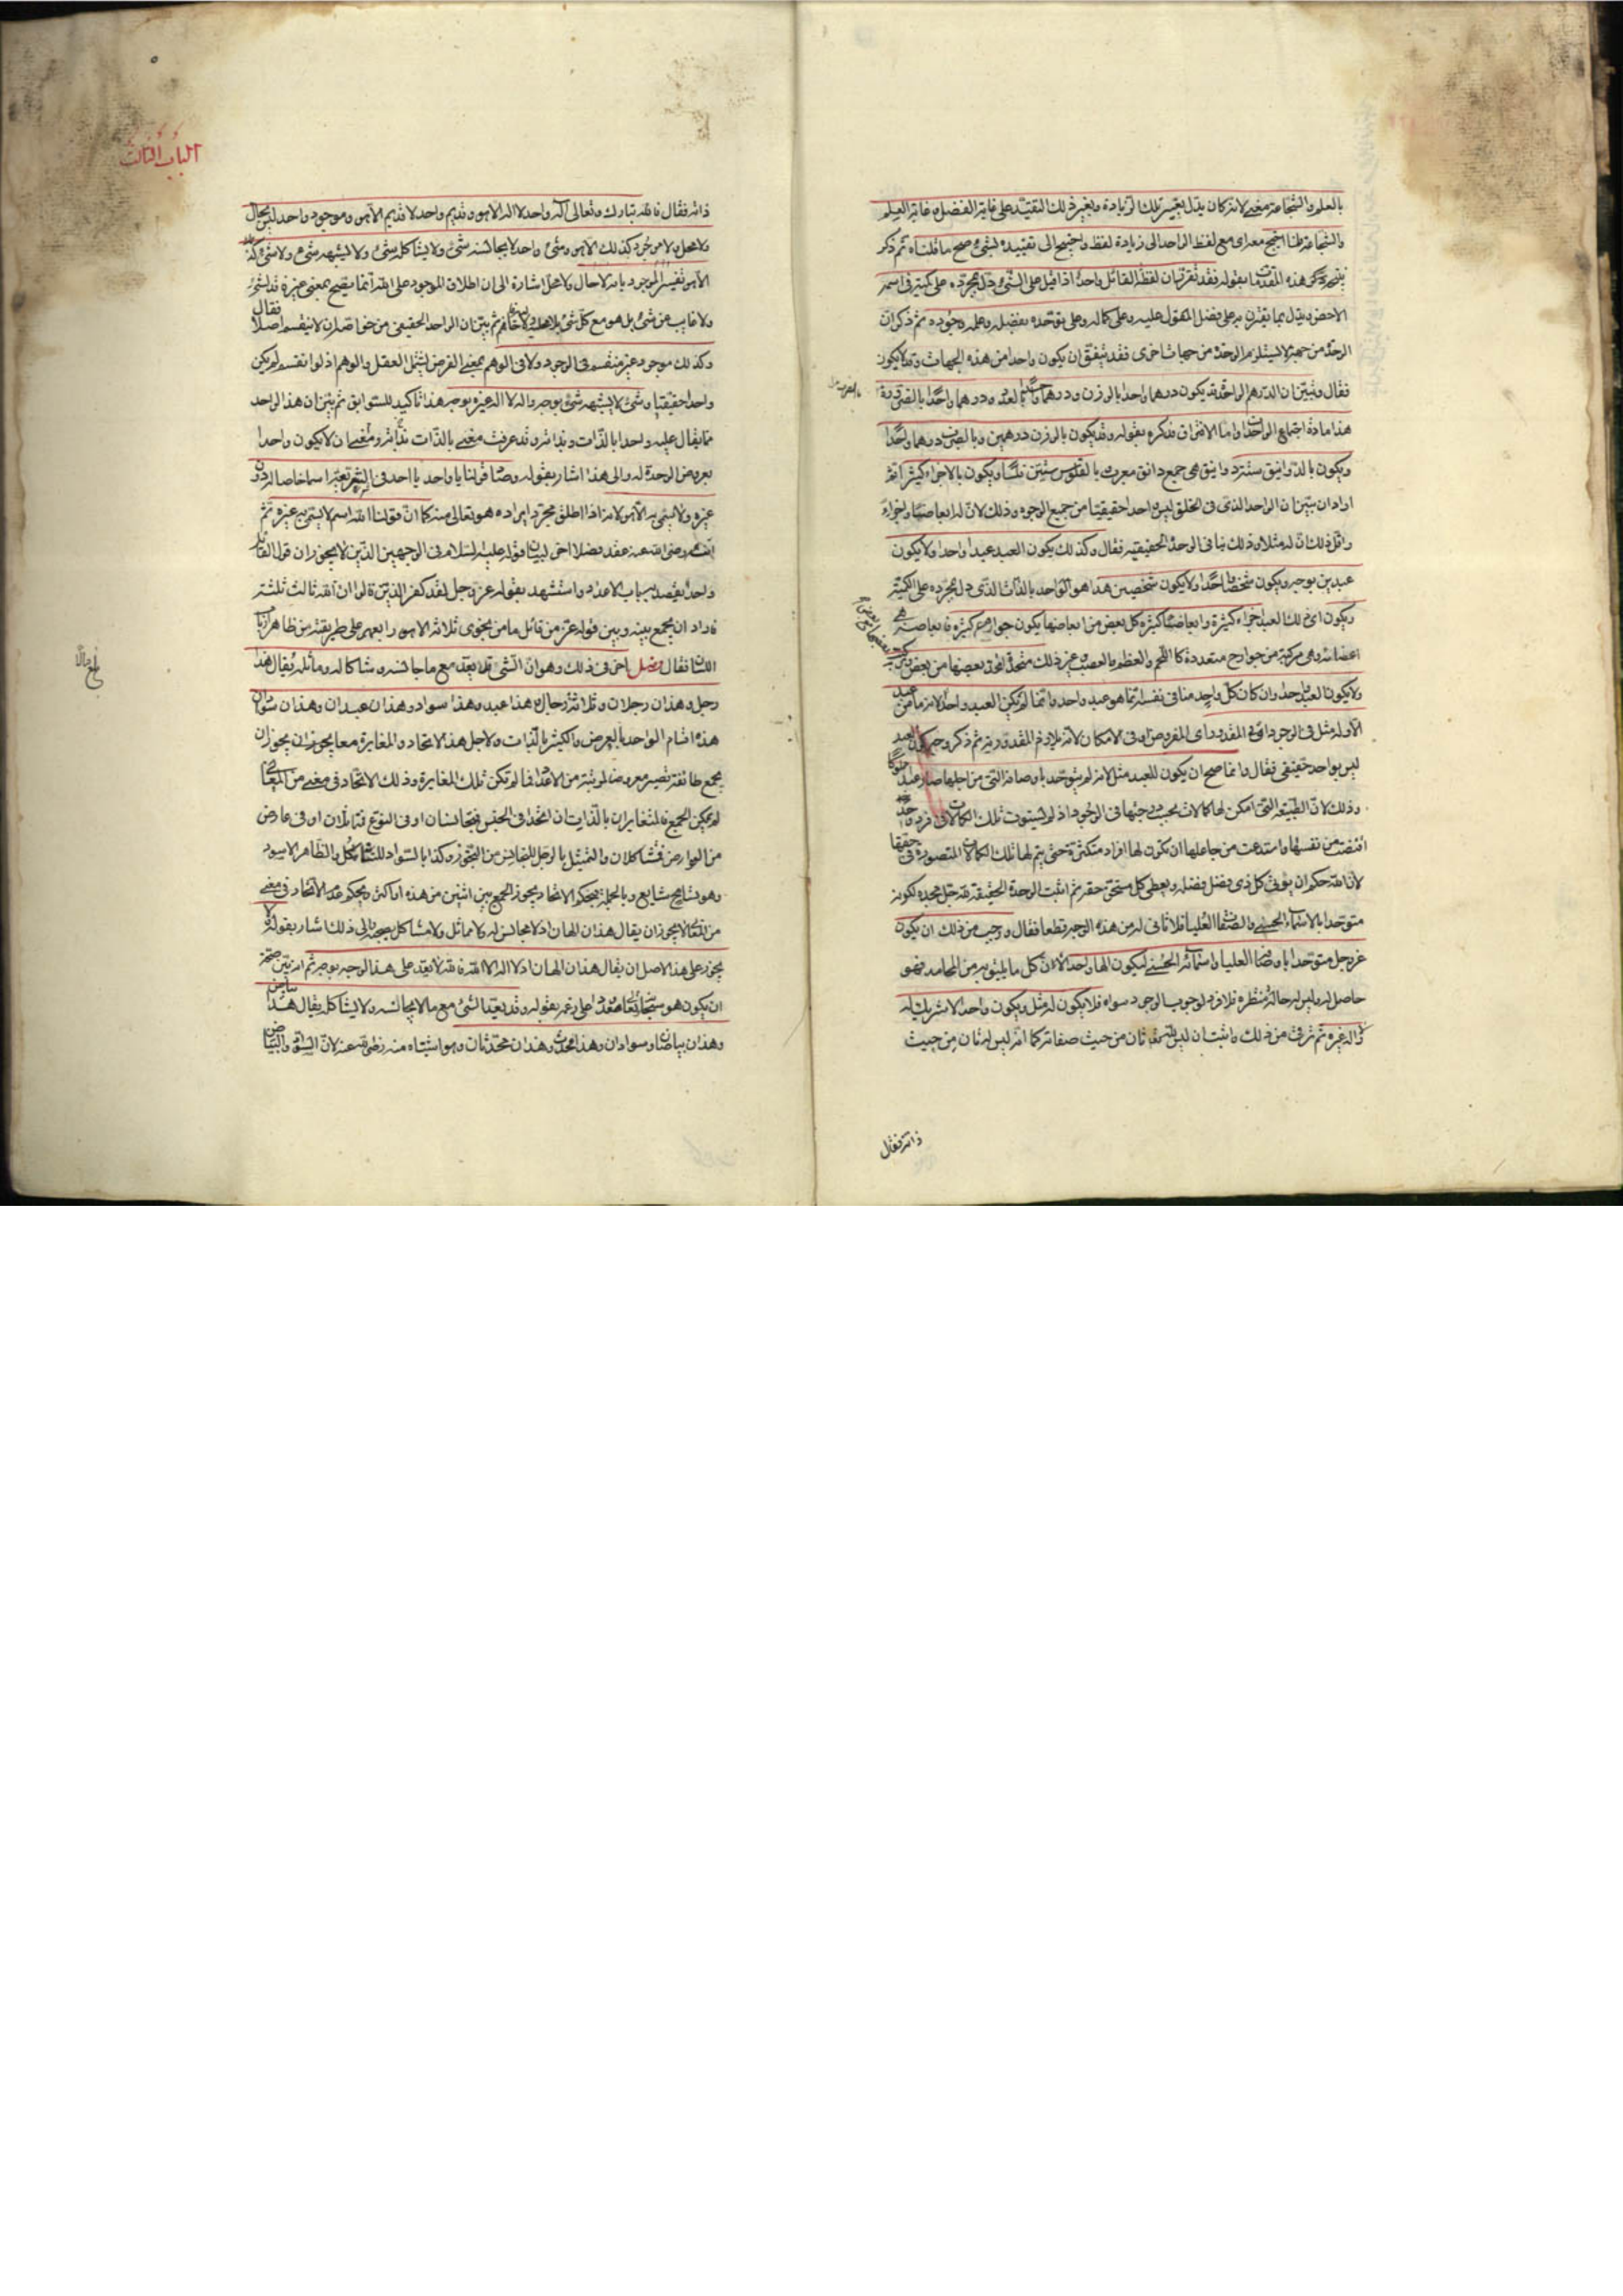 بالعلم والشجاعة معنى لانه كان يدل بغير تلك الزيادة وبغير ذلك التقييد على غاية الفضل و غاية العلم
والشجاعة فلما احتيج معه الى مع لفظ الواحد الى زيادة لفظ واحتيج الى تقييده بشيء صح ما قلناه ثم ذكر
هذه المقدمات بقوله فقد تقرر ان لفظة القائل واحد اذا قيل على الشيء دل بمجرده على كمية في اسمه
الاخص ويدل بما يقترن به على فضل المقول عليه وعلى كماله وعلى توحده بفضله وعلمه وجوده ثم ذكر ان
الوحدة من جهة لا يستلزم الوحدة من جهات اخرى فقد يتفق ان يكون واحدا من هذه الجهات وقد لا يكون
فقال وتبين ان الدرهم الواحد قد يكون درهما واحدا بالوزن ودرهما واحدا بالعدد ودرهما واحدا بالضرب
هذا مادة اجتماع الوحدات واما الافتراق فذكره بقوله وقد يكون بالوزن درهمين وبالضرب درهما واحدا
ويكون بالدوانيق ستة دوانيق هي جمع دانق معرب بالفلوس ستين فلسا ويكون بالاجزاء كثيرا ثم
اراد ان يبين ان الواحد الذي في الخلق ليس واحدا حقيقيا من جميع الوجوه وذلك لان له ابعاضا واجزاء
واقل ذلك ان له مثلا وذلك ينافي الوحدة الحقيقية فقال وكذلك يكون العبد عبدا واحدا ولا يكون
عبدين بوجه ويكون شخصا واحدا ولا يكون شخصين هذا هو الواحد بالذات الذي دل بمجرده على الكمية
ويكون اي ذلك العبد اجزاء كثيرة وابعاضا كثيرة كل بعض من ابعاضها يكون جواهر كثيرة فابعاضه هي
اعضائه وهي مركبة من جوارح متعددة كاللحم والعظم والعصب وغير ذلك متحد بعضها من بعض
ولا يكون العبد واحدا وان كان كل واحد منا في نفسه انما هو عبد واحد وانما لم يكن العبد واحدا لانه ما من عبد
الا وله مثل في الوجود او في المقدور اي المفروض او في الامكان لانه يلازم المقدورية ثم ذكر وجه كون العبد
ليس بواحد حقيقي فقال وانما صح ان يكون للعبد مثل لانه لم يتوحد باوصافه التي من اجلها صار عبدا مملوكا
وذلك لان الطبيعة التي امكن لها كمالات بحسب درجتها في الوجود اذ لم يستوت تلك الكمالات في فرد واحد
اقتضت من نفسها واستدعت من جاعلها ان يكون لها افراد متكثرة حتى يتم لها تلك الكمالات المتصورة في حقها
لان الله حكم ان يؤتي كل ذي فضل فضله ويعطي كل مستحق حقه ثم اثبت الوحدة الحقيقية لله جل مجده لكونه
متوحدا بالاسماء الحسنى والصفات العليا فلا ثاني له من هذه الوجه قطعا فقال ووجب من ذلك ان يكون
عز وجل متوحدا باوصافه العليا واسمائه الحسنى ليكون الها واحدا لان كل ما يليق به من المحامد فهو
حاصل له وليس له حالة منتظرة فلا فرد لوجوب الوجود سواه فلا يكون له مثل ويكون واحدا لا شريك له
ولا اله غيره ثم ترقى من ذلك واثبت ان ليس لله ثان من حيث صفاته كما انه ليس له ثان من حيث
ذاته فقال
الباب الثالث
ذاته فقال فالله تبارك وتعالى اله واحد لا اله الا هو وقديم واحد لا قديم الا هو وموجود واحد ليس بحال
ولا محل ولا موجود كذلك الا هو وشيء واحد لا يجانسه شيء ولا يشاكله شيء ولا يشبهه شيء ولا شيء كذلك
الا هو تفسير الموجود بانه لا حال ولا محل اشارة الى ان اطلاق الموجود على الله انما يصح بمعنى
ولا غايب عن شيء بل هو مع كل شيء ثم بين ان الواحد الحقيقي من خواصه ان لا ينقسم اصلا فقال
وكذلك موجود غير منقسم في الوجود ولا في الوهم بمعنى الفرض ليشمل العقل والوهم اذ لو انقسم لم يكن
واحدا حقيقيا وشيء لا يشبهه شيء بوجه واله لا اله غيره بوجه هذا تاكيد للسوابق ثم بين ان هذا الواحد
مما يقال عليه واحدا بالذات وبذاته وقد عرفت معنى بالذات بذاته ومعنى ان لا يكون واحدا
بعروض الوحدة له والى هذا اشار بقوله وصار قولنا يا واحد يا احد في الشريعة اسما خاصا له دون
غيره ولا يسمى به الا هو لانه اذا اطلق مجرد ايراده هو تعالى منه كما ان قولنا الله اسم لا يسمى به غيره ثم
انه رضي الله عنه عقد فصلا اخر لبيان قوله عليه السلام في الوجهين الذين لا يجوزان قول القائل
واحد يقصد به باب الاعداد واستشهد بقوله عز وجل لقد كفر الذين قالوا ان الله ثالث ثلثة
فاراد ان يجمع بينه وبين قوله عز من قائل ما من نجوى ثلاثة الا هو رابعهم على طريقة من ظاهر ارباب
اللسان فقال فصل اخر في ذلك وهو ان الشيء قد يعد مع ما جانسه وشاكله وماثله يقال هذا
رجل وهذان رجلان وثلاثة رجال وهذا عبد وهذا سواد وهذان عبدان وهذان سوادان
هذه اقسام الواحد بالعرض والكثير بالذات ولاجل هذا الاتحاد والمغايرة معا يجوز ان
يجمع طائفة تصير معروضا لمرتبة من الاعداد فما لم تكن تلك المغايرة وذلك الاتحاد في معنى من المعاني
لم يمكن الجمع فالمتغايران بالذات ان اتحدا في الجنس فمتجانسان او في النوع فمتماثلان او في عارض
من العوارض فمتشاكلان والتمثيل بالرجل للتجانس من التجوز وكذا بالسواد للتشاكل والظاهر الاسود
وهو تسامح شايع وبالجملة بحكم الاتحاد يجوز الجمع بين اثنين من هذه او اكثر وبحكم عدم الاتحاد في معنى
من المعاني لا يجوز ان يقال هذان الهان اذ لا مجانس له ولا مماثل ولا مشاكل بوجه والى ذلك اشار بقوله ولا
يجوز على هذا الاصل ان يقال هذان الهان اذ لا اله الا الله فالله لا يعد على هذا الوجه بوجه ثم انه بين صحة
ان يكون هو سبحانه عادا معدودا على زعمه بقوله وقد يعد الشيء مع ما لا يجانسه ولا يشاكله يقال هذا بياض
وهذان بياض وسواد وهذا محدث وهذان محدثان وهو اشتباه منه رضي الله عنه لان السواد والبياض